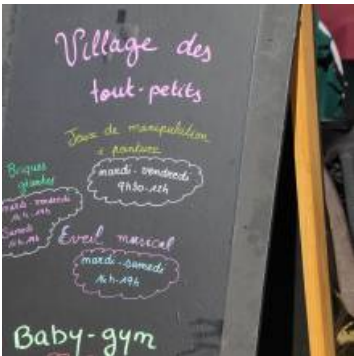 Village des
tout-petits
Jeux de manipulation
+ peinture
mardi - vendredi
9h30-12h
Briques
géantes
mardi - vendredi
16h-19h
Samedi
Eveil musical
mardi - samedi
16h-19h
Baby-gym